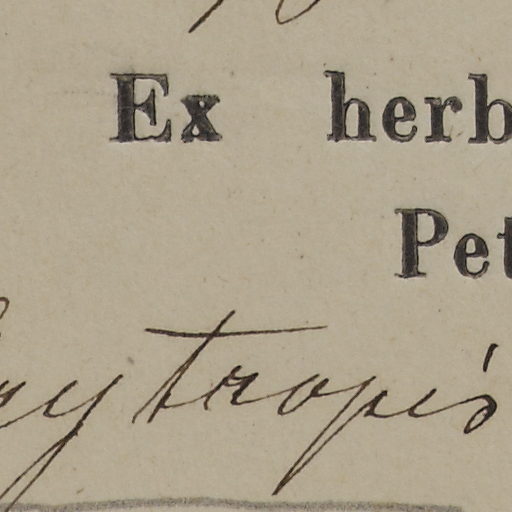 Ex herb
Pet
xytropis